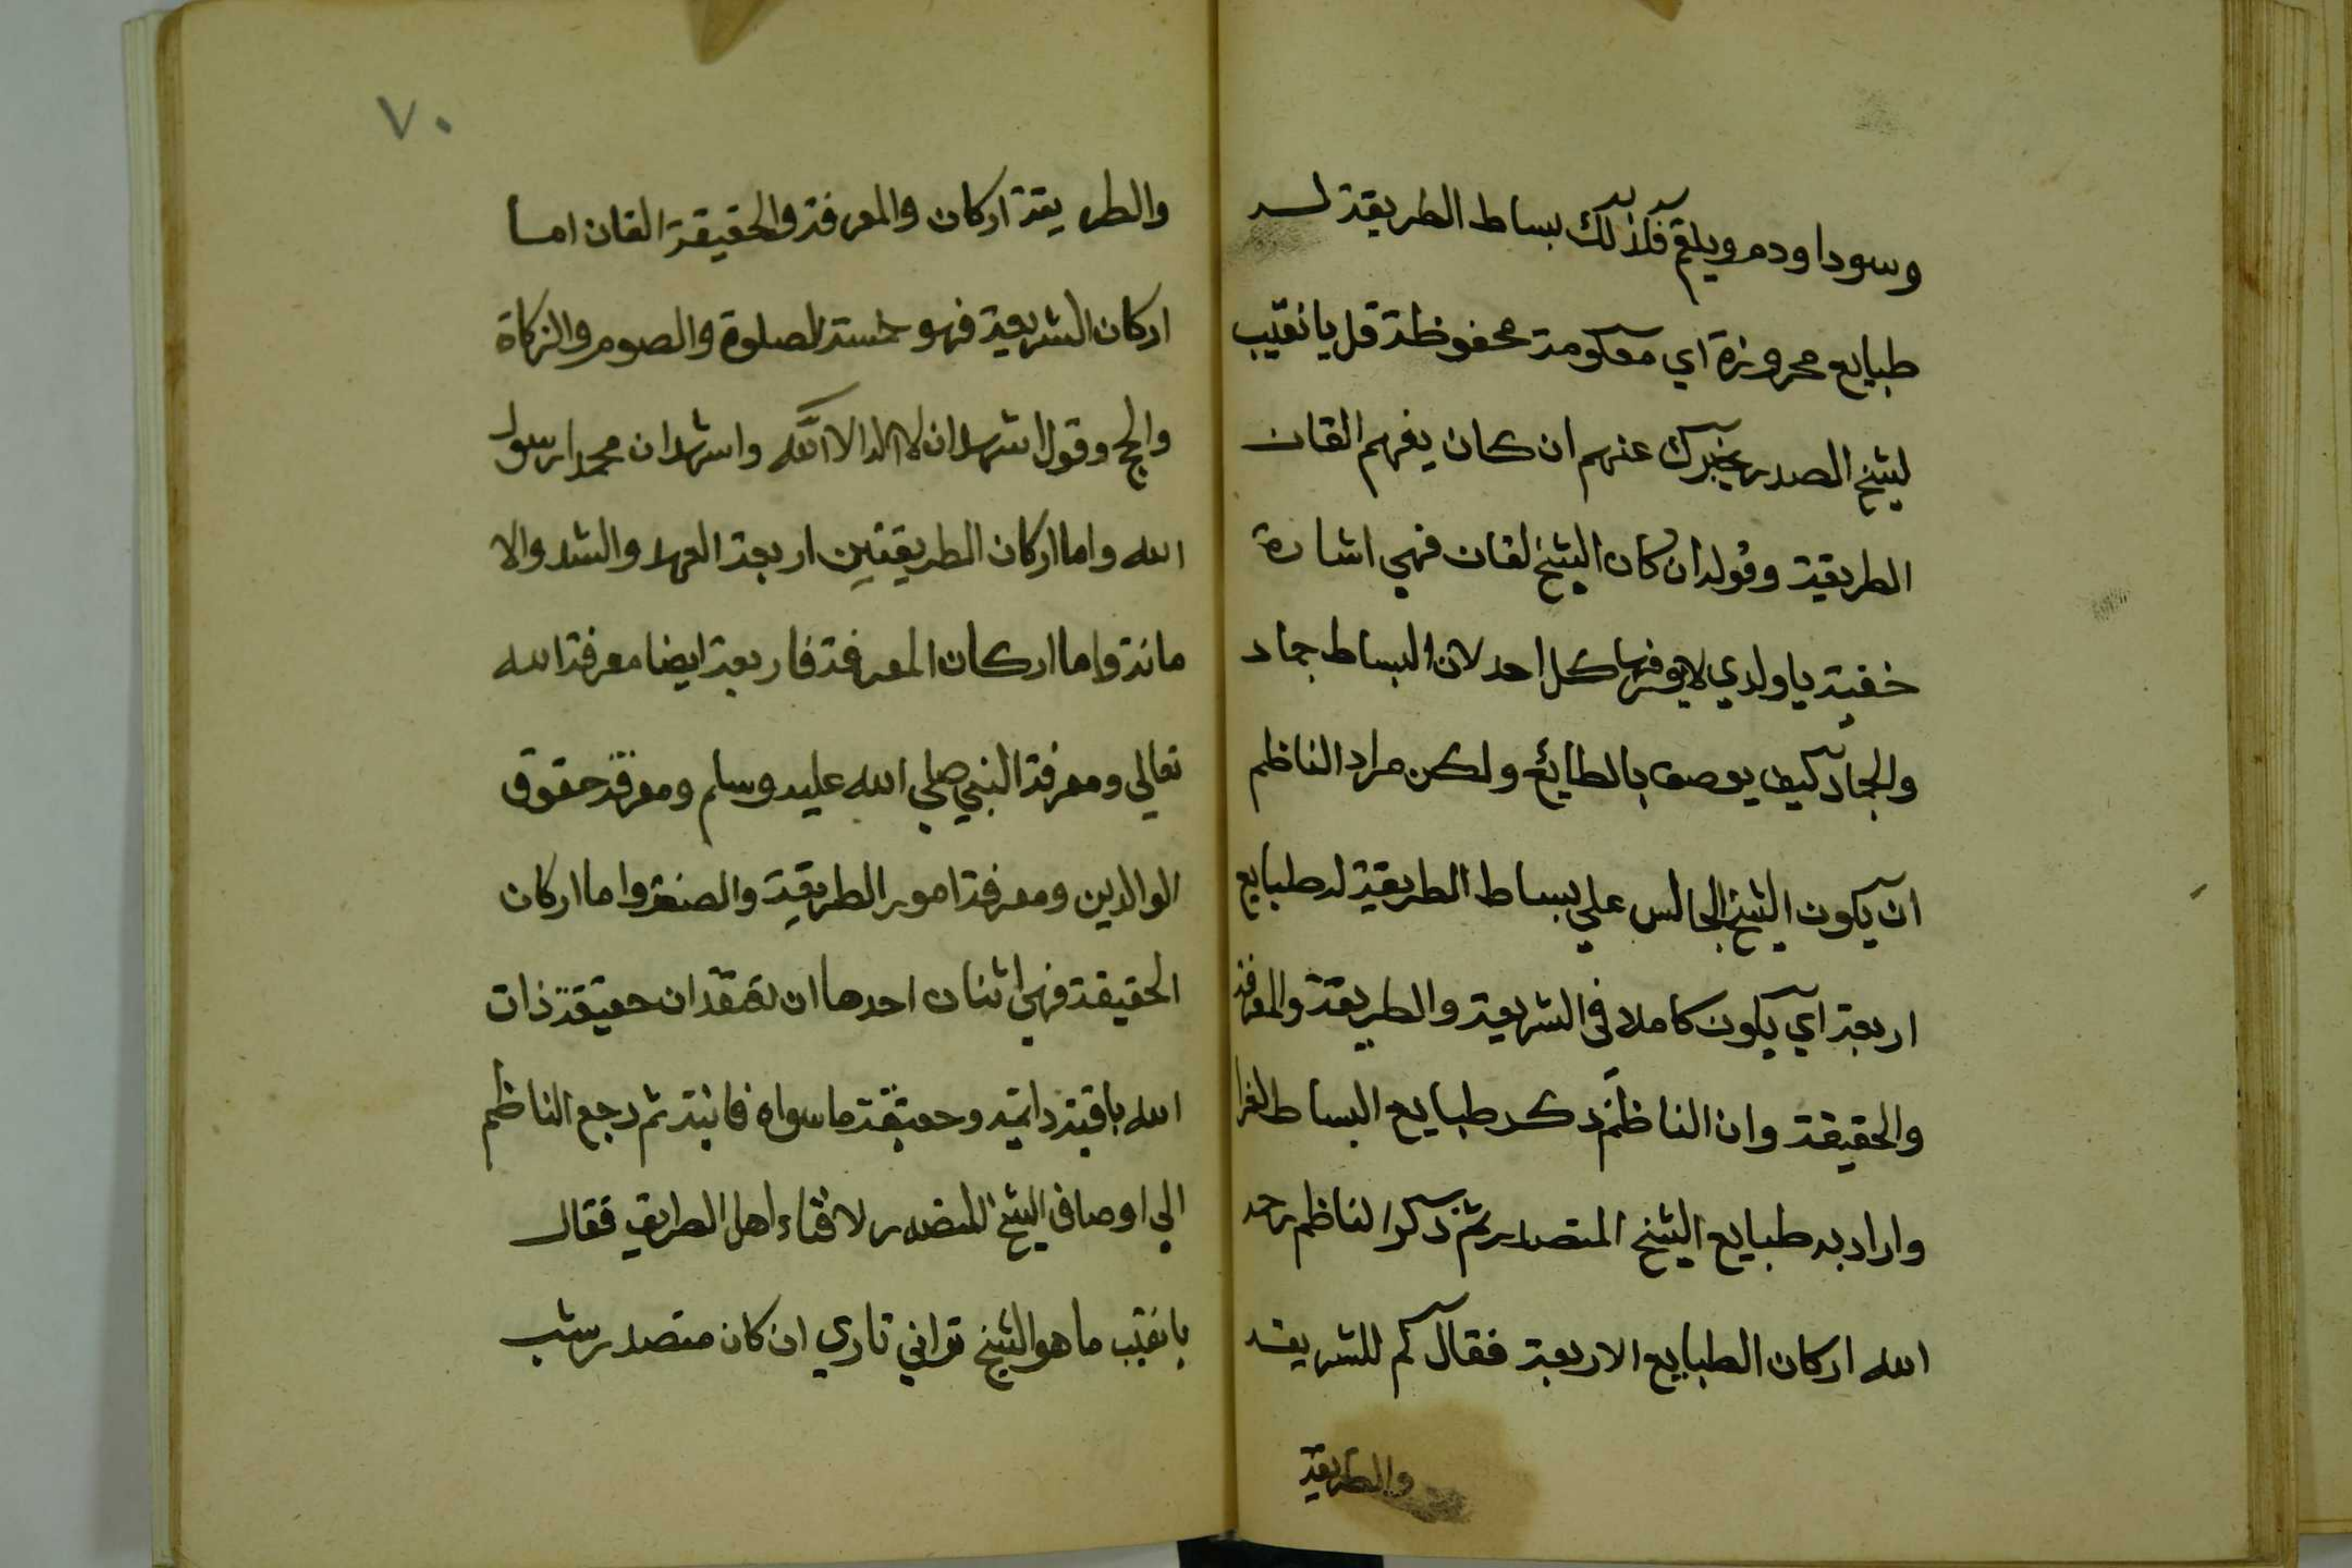 وسودا ودم وبلغم فلذلك بساط الطريقة له
طبايع محروزة اي معكومة محفوظة قل يا نقيب
لشيخ الصدر يخبرك عنهم ان كان يفهم القان
الطريقة وقوله ان كان الشيخ لقان فهي اشارة
خفية يا ولدي لا يعرفها كل احد لان البساط جماد
والجماد كيف يوصف بالطايع ولكن مراد الناظم
ان يكون الشيخ الجالس علي بساط الطريقة له طبايع
اربعة اي يكون كاملا في الشريعة والطريقة والمعرفة
والحقيقة وان الناظم ذكر طبايع البساط
واراد به طبايع الشيخ المتصدر ثم ذكر الناظم رحمه
الله اركان الطبايع الاربعة فقال كم للشريعة
والطريقة
٧٠
والطريقة اركان والمعرفة والحقيقة القان اما
اركان الشريعة فهو خمسة الصلوة والصوم والزكاة
والحج وقول اشهد ان لا اله الا الله واشهد ان محمدا رسول
الله واما اركان الطريقتين اربعة العهد والشد والا
مانة واما اركان المعرفة فاربعة ايضا معرفة الله
تعالي ومعرفة النبي صلي الله عليه وسلم ومعرفة حقوق
الوالدين ومعرفة امور الطريقة والصنعة واما اركان
الحقيقة فهي اثنان احدها ان تعتقد ان حقيقة ذات
الله باقية دايمة وحقيقة ما سواه فانية ثم رجع الناظم
الي اوصاف الشيخ المتصدر لافتاء اهل الطريق فقال
يا نقيب ما هو الشيخ تراني تاري ان كان متصدر